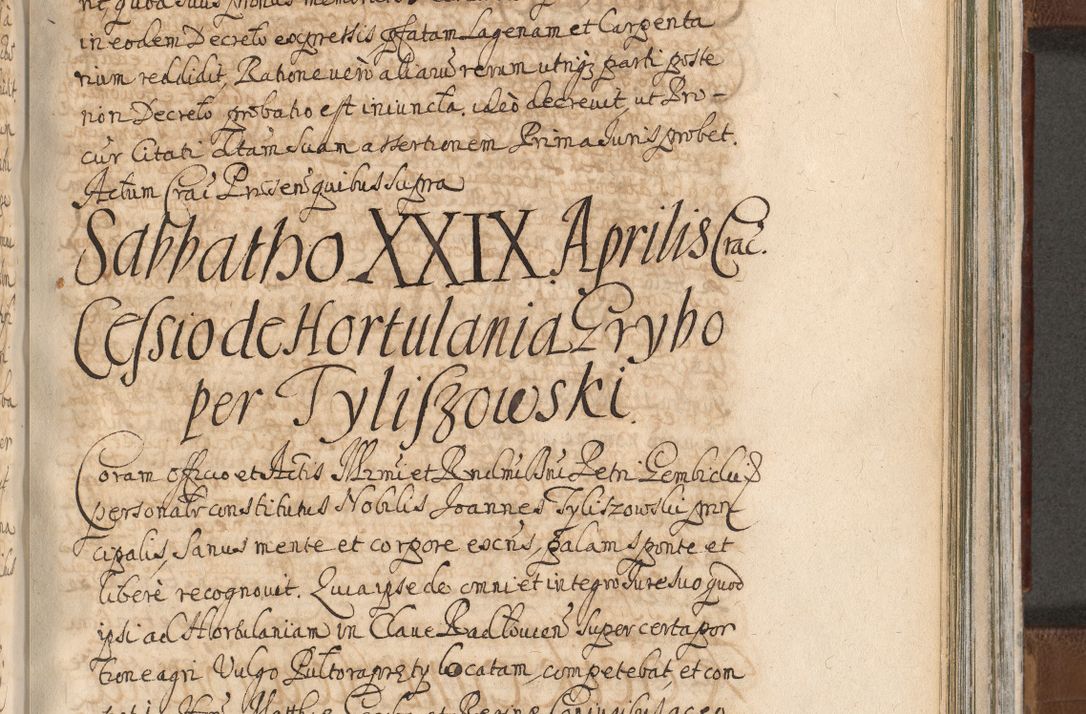 in eodem Decreto expressis pfatam Lagenam et Cargenta
rium reddidit, Ratione vero aliarũ rerum utriqz parti poste
riori Decreto probatio est iniuncta. ideò decrevit, ut Pro-
cur Citati dtam suam assertionem Prima Juris probet.
Actum Crac Præsen quibus supra
Sabbatho XXIX. Aprilis Crac.
Cessio de Hortulania Grybo
per Tyliszowski.
Coram officio et Actis Illrmi et Rndmi Dni Petri Gembicki
personalr constitutus Nobilis Joannes Tyliszowski prin
cipalis, sanus mente et corpore exñs, palam sponte et
liberè recognovit. Quia ipse de omni et integro Jure suo quod
ipsi ad Hortulaniam in Clave Radłovien super certa por
tione agri Vulgo Pułtorapręty locatam, competebat, et com